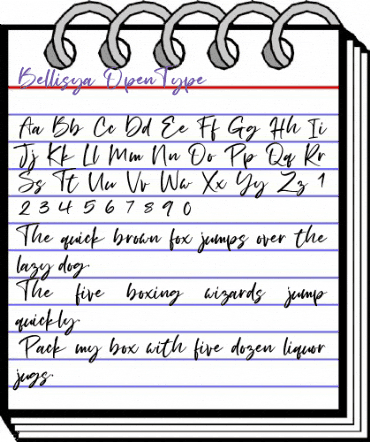 Bellisya OpenType
Aa Bb Cc Dd Ee Ff Gg Hh Ii
Jj Kk Ll Mm Nn Oo Pp Qq Rr
Ss Tt Uu Vv Ww Xx Yy Zz 1
2 3 4 5 6 7 8 9 0
The quick brown fox jumps over the
lazy dog.
The five boxing wizards jump
quickly.
Pack my box with five dozen liquor
jugs.